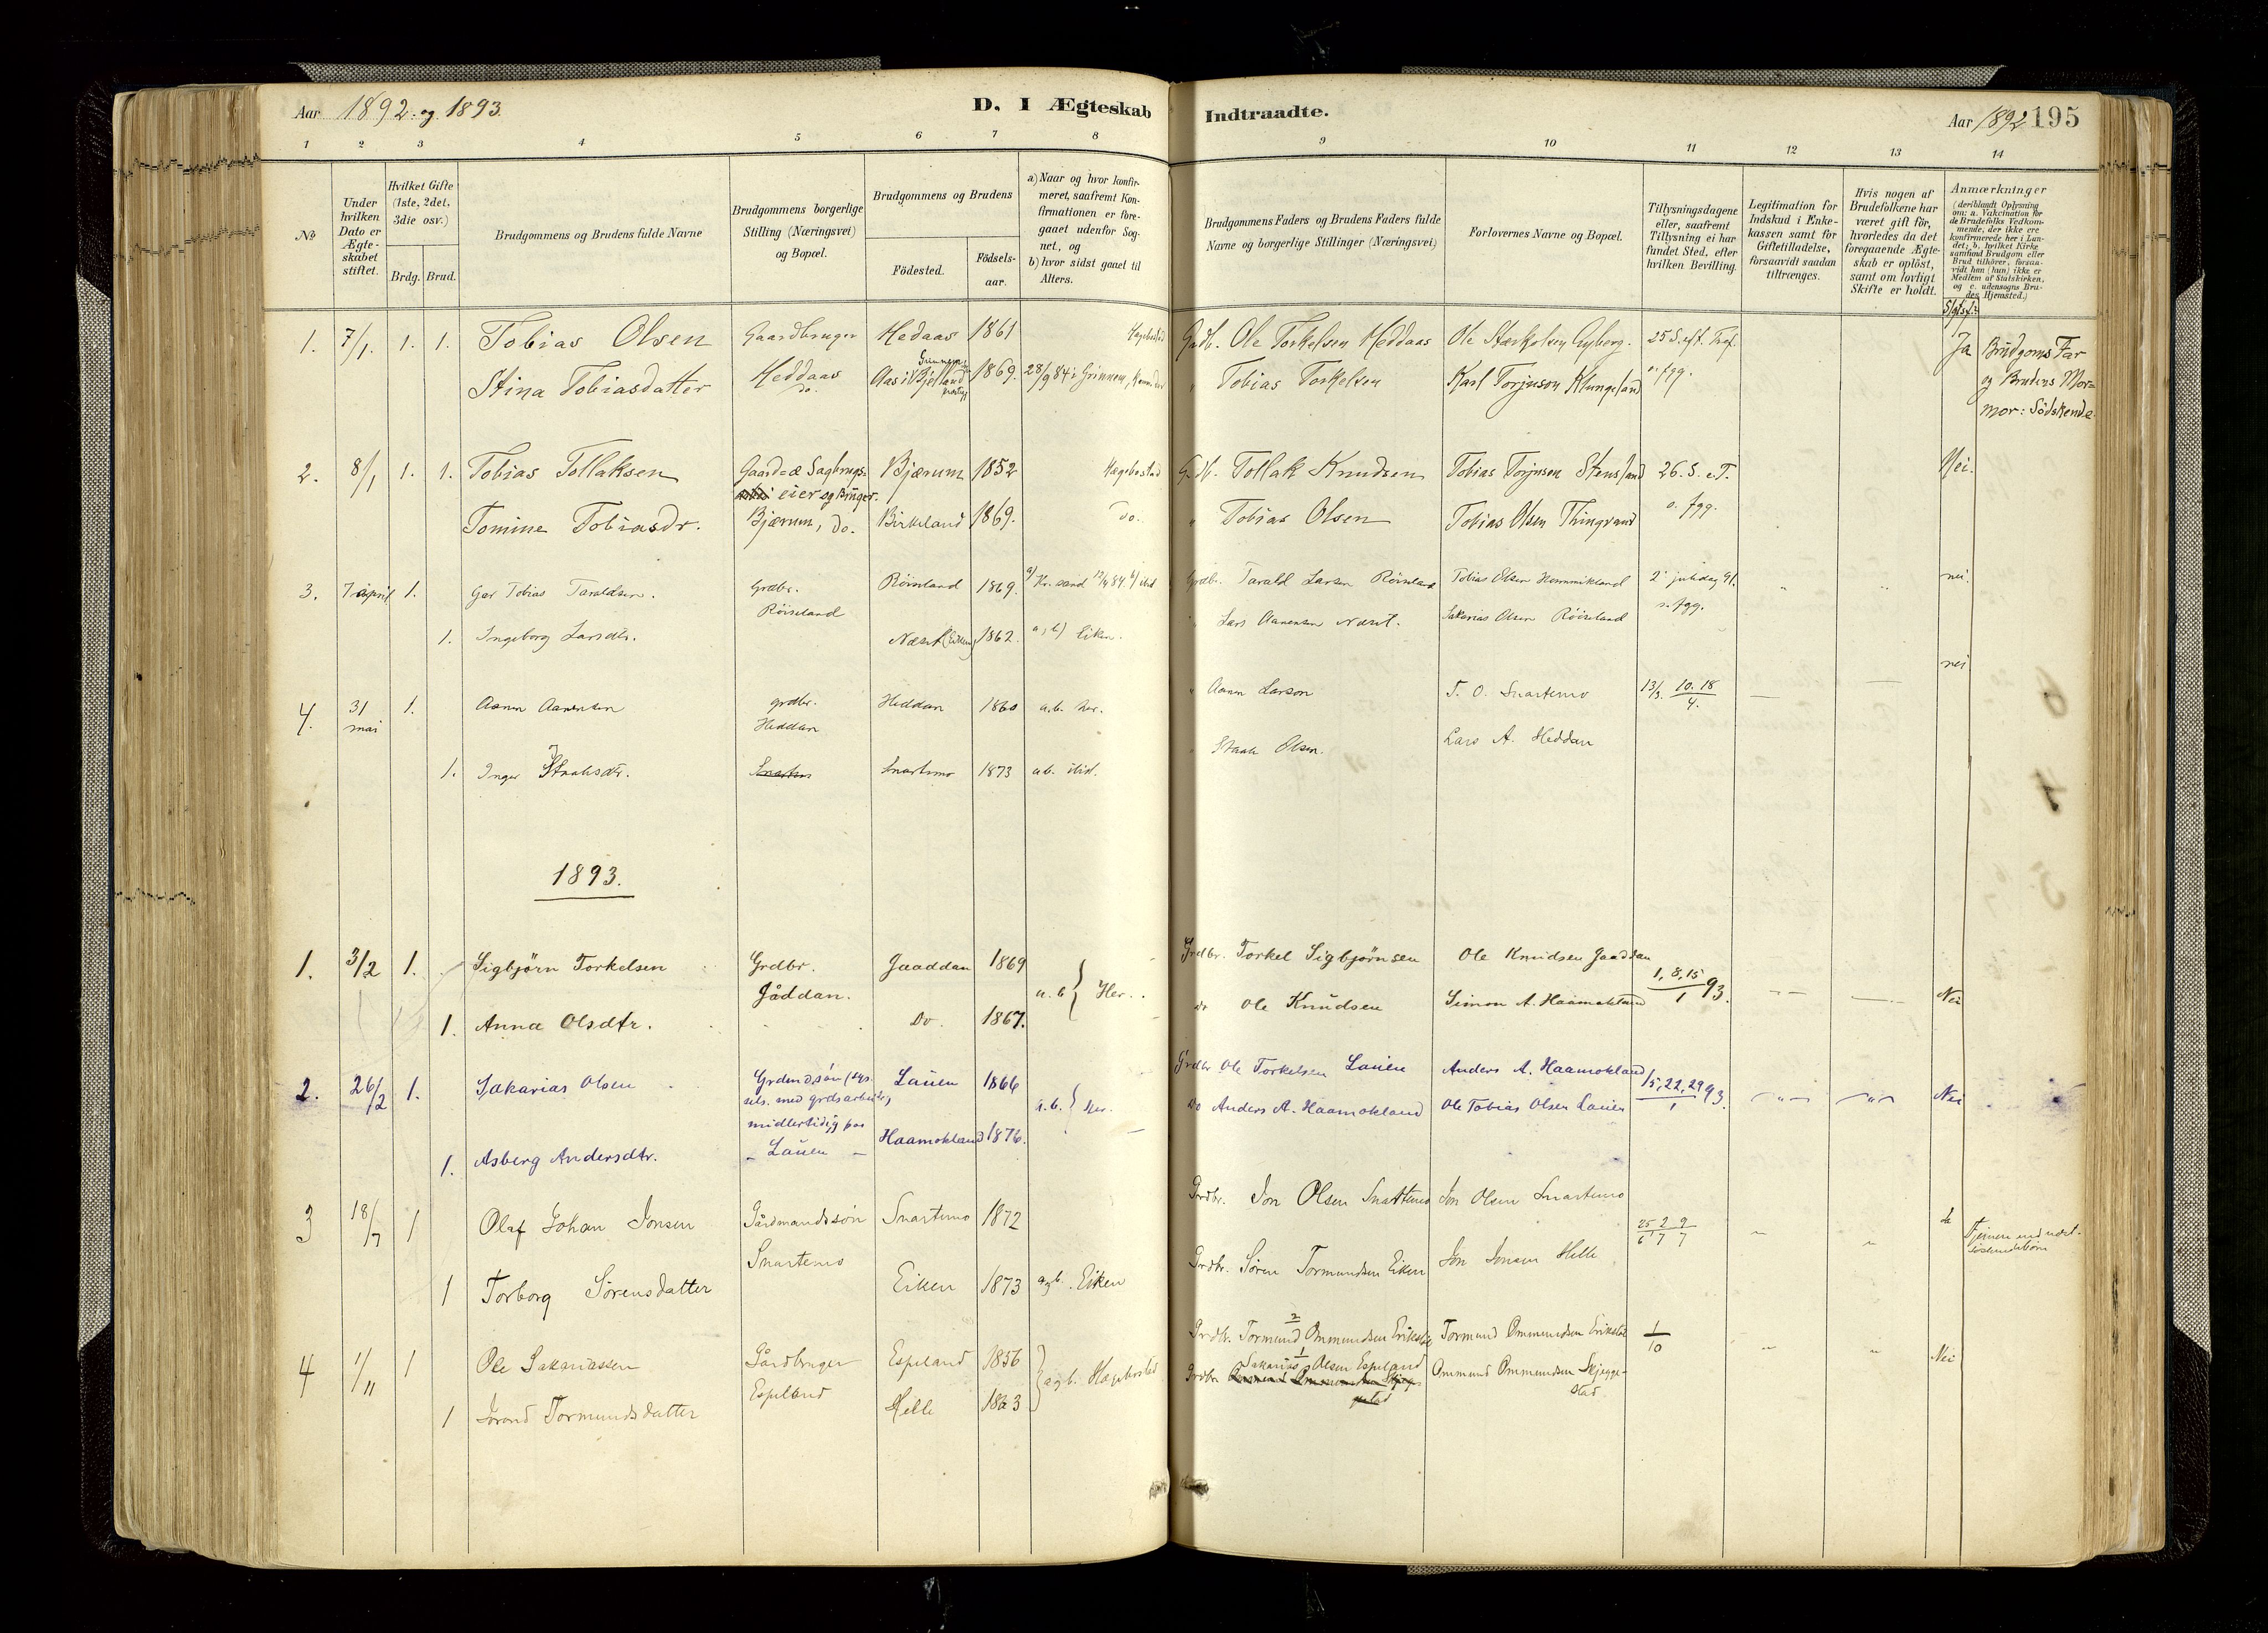 Aar 1892 og 1893.
D. I Ægteskab
Indtraadte.
Aar 1892
195
1 2 3 4 5 6 7 8
9 10 11 12 13 14
No
Under hvilken Dato er Ægteskabet stiftet.
Hvilket Gifte (1ste, 2det, 3die osv.)
Brdg. Brud.
Brudgommens og Brudens fulde Navne
Brudgommens borgerlige Stilling (Næringsvei) og Bopæl.
Brudgommens og Brudens
Födested.
Födsels-aar.
a) Naar og hvor konfirmeret, saafremt Konfirmationen er foregaaet udenfor Sognet, og
b) hvor sidst gaaet til Alters.
Brudgommens Faders og Brudens Faders fulde Navne og borgerlige Stillinger (Næringsvei)
Forlovernes Navne og Bopæl.
Tillysningsdagene eller, saafremt Tillysning ei har fundet Sted, efter hvilken Bevilling.
Legitimation for Indskud i Enkekassen samt for Giftetilladelse, forsaavidt saadan tiltrænges.
Hvis nogen af Brudefolkene har været gift för, hvorledes da det foregaaende Ægteskab er oplöst, samt om lovligt Skifte er holdt.
Anmærkninger
(deriblandt Oplysning om: a. Vakcination for de Brudefolks Vedkommende, der ikke ere konfirmerede her i Landet; b. hvilket Kirkesamfund Brudgom eller Brud tilhörer, forsaavidt han (hun) ikke er Medlem af Statskirken, og c. udensogns Brudes Hjemsted.)
1. 7/1. 1. 1. Tobias Olsen Gaardbruger Hedaas 1861 Hægebostad Gadb. Ole Torkelsen Heddaas Ole Stærkolsen Gyberg. 25 S. eft. Tref. Ja Brudgoms Far
Stina Tobiasdatter Heddaas do. Aas i Bjelland 1869. 28/9 84 i Grinnem, " Tobias Torkelsen Karl Torjuson Klungeland o. fgg. og Brudens Mor=
mor: Södskende
2. 8/1 1. 1. Tobias Tollaksen Gaard= & Sagbrugs= Bjærum 1852 Hægebostad Gdb. Tollak Knudsen Tobias Torjuson Stensland 26. S. e. T. Nei.
eier og Bruger.
Tomine Tobiasdr. Bjærum, do. Birkeland 1869. do. " Tobias Olsen Tobias Olsen Thingvand o. fgg.
3. 7 april 1. Gar Tobias Taraldsen. Grdbr. Röiseland 1869. a) Kr. sand Grdbr. Tarald Larsen Röiseland Tobias Olsen 2 juledag 91. nei.
Röiseland
1. Ingeborg Larsdtr. (Eiken) 1862. a, b) Eiken. " Lars Aanensen Sakarias Olsen Röiseland o. fgg.
4. 31 mai 1. Aanen Aanensen grdbr. Heddan 1860 a.b. her. " Aanen Larson T. O. Snartemo 13/3. 10. 18/4. nei
Heddan
1. Inger Staalesdtr. Snartemo 1873 a.b. ibid. " Staale Olsen. Lars A. Heddan
1893.
1. 3/2 1. Sigbjörn Torkelsen Grdbr. Gaaddan 1869 a.b } Her. Grdbr. Torkel Sigbjørnsen Ole Knudsen Gaaddan 1, 8, 15/1 93. Nei
Gåddan.
1. Anna Olsdtr. Do. 1867. do Ole Knudsen Simon A. Haamokland
2. 26/2 1. Sakarias Olsen Grdmdsön (sys- Lauen 1866 a.b. } her. Grdbr Ole Torkelsen Lauen Anders A. Haamokland 15, 22, 29/1 93. Nei
sels. med grdsarbeide,
midlertidig paa
1. Asberg Andersdtr. - Lauen - Haamokland 1876. do Anders A. Haamokland Ole Tobias Olsen Lauen
3 18/7 1 Olaf Johan Jonsen Gårdmandssön Snartemo 1872 Grdbr. Jon Olsen Snartemo Jon Olsen Snartemo 25/6 2/7 9/7
Snartemo
1 Torborg Sörensdatter Eiken 1873 a og b. Eiken Grdbr. Sören Tormundsen Eiken Jon Jonsen Helle
4 1/11 1 Ole Sakariassen Gårdbruger Espeland 1856 } a og b. Hægebostad Grdbr. Tormund Ommundsen Erikstad Tormund Ommundsen Erikstad 1/10 Nei
Espeland
1 Jorand Tormundsdatter Helle 1863 Grdbr Sakarias Olsen Espeland Ommund Ommundsen Skjeggestad